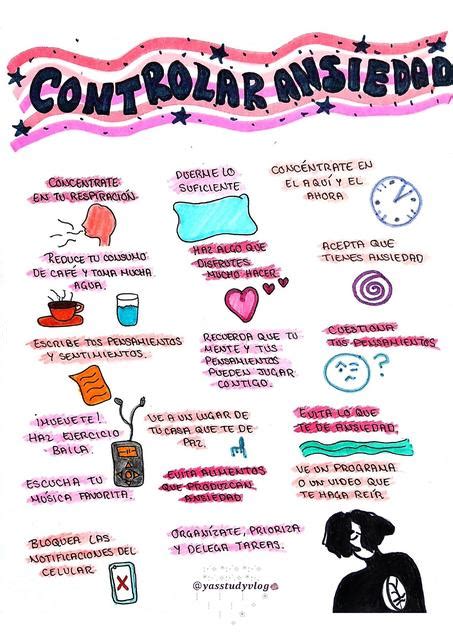 CONTROLAR ANSIEDAD
CONCÉNTRATE
EN TU RESPIRACIÓN.
DUERME LO
SUFICIENTE
CONCÉNTRATE EN
EL AQUÍ Y EL
AHORA
REDUCE TU CONSUMO
DE CAFÉ Y TOMA MUCHA
AGUA.
HAZ ALGO QUE
DISFRUTES
MUCHO HACER.
ACEPTA QUE
TIENES ANSIEDAD
ESCRIBE TUS PENSAMIENTOS
Y SENTIMIENTOS.
RECUERDA QUE TU
MENTE Y TUS
PENSAMIENTOS
PUEDEN JUGAR
CONTIGO.
CUESTIONA
TUS PENSAMIENTOS
?
¡MUEVETE!
HAZ EJERCICIO
BAILA.
VE A UN LUGAR DE
TU CASA QUE TE DE
PAZ.
EVITA LO QUE
TE DE ANSIEDAD.
ESCUCHA TU
MÚSICA FAVORITA.
EVITA ALIMENTOS
QUE PRODUZCAN
ANSIEDAD
VE UN PROGRAMA
O UN VIDEO QUE
TE HAGA REÍR.
BLOQUEA LAS
NOTIFICACIONES DEL
CELULAR
X
ORGANÍZATE, PRIORIZA
Y DELEGA TAREAS.
@yasstudyvlog